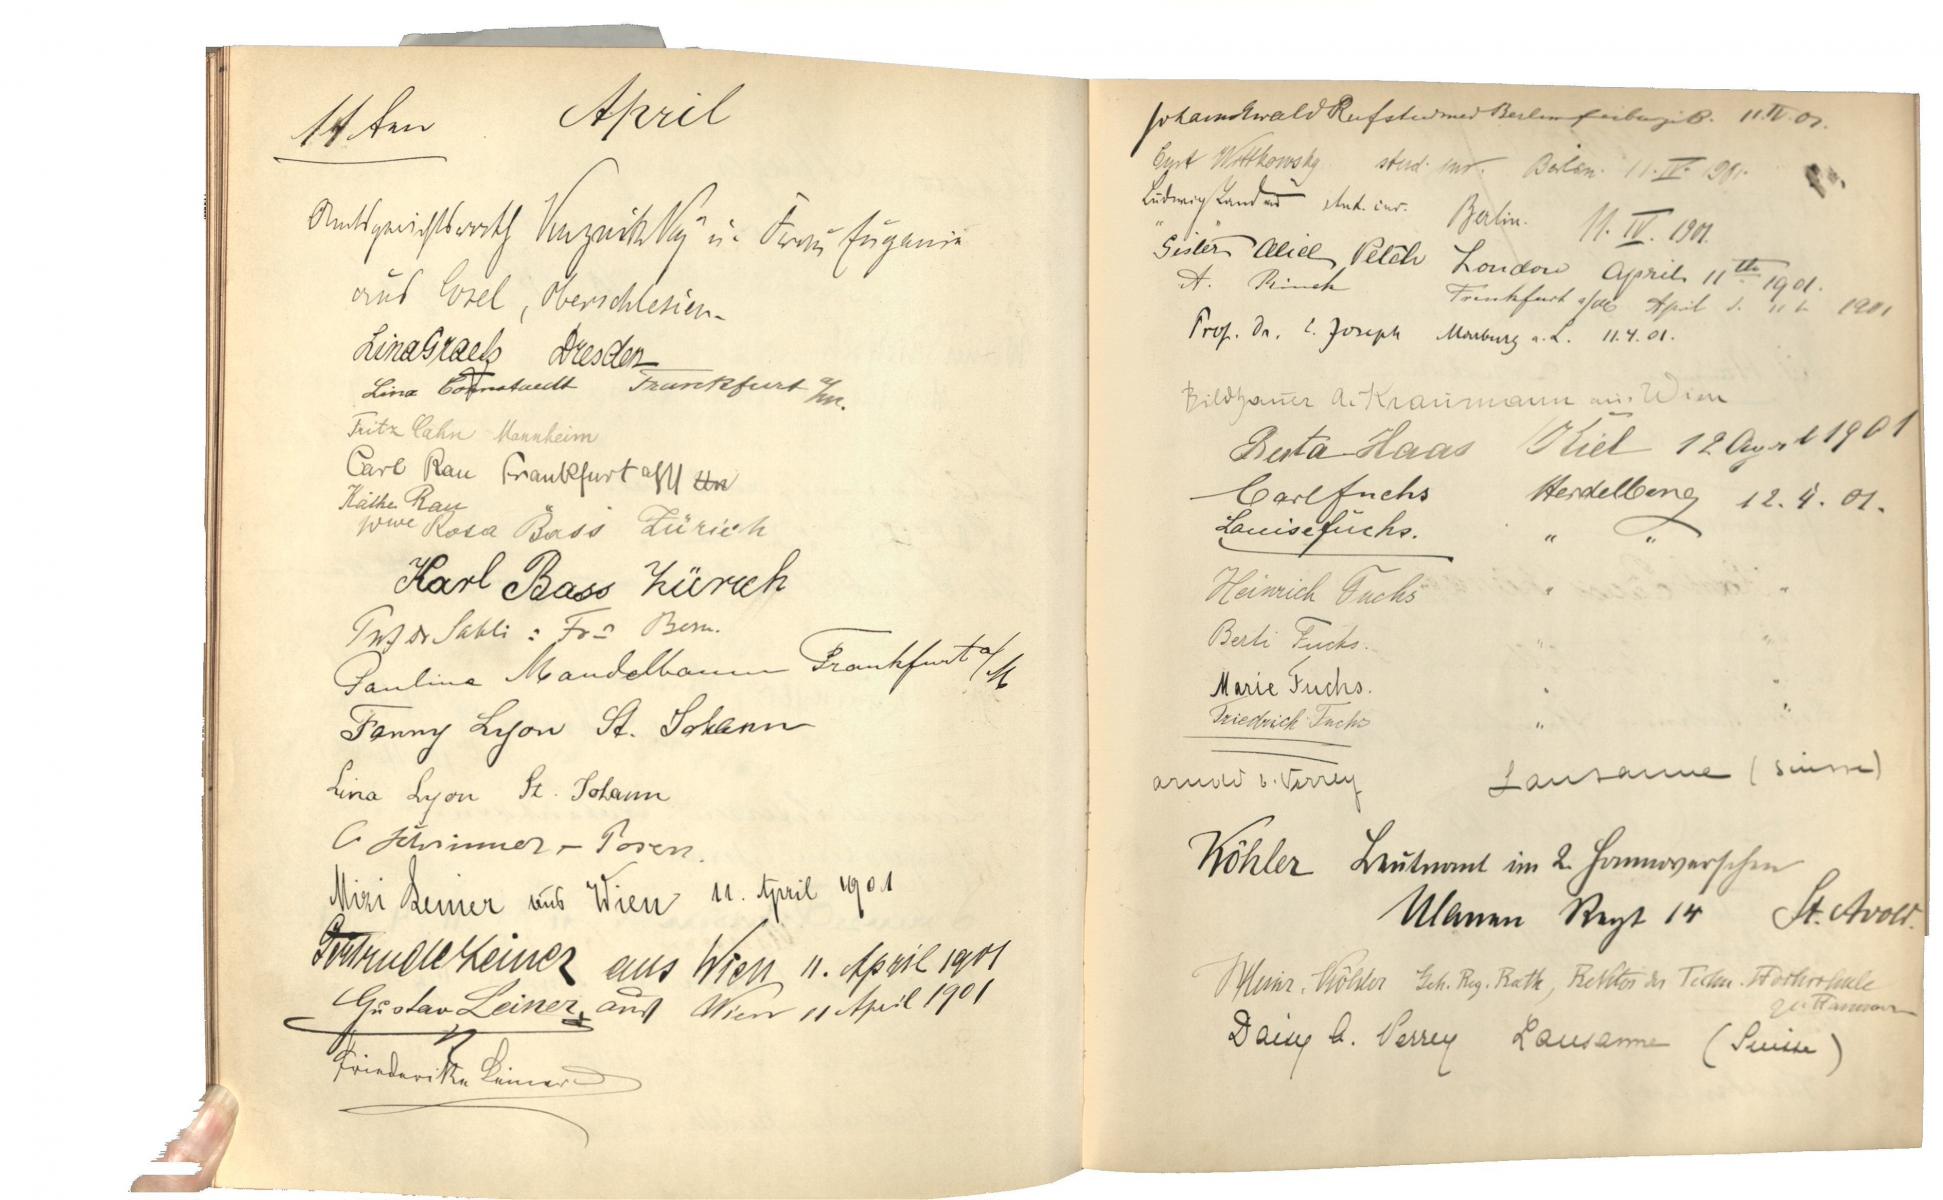 11ten April
Amtsgerichtsrath u. Frau Eugenie
aus Cosel, Oberschlesien
Lina Graetz Dresden
Lina Frankfurt a/M.
Fritz Cahn Mannheim
Carl Rau Frankfurt a/M
Käthe Rau
Wwe Rosa Bass Zürich
Karl Bass Zürich
Prof Dr Sahli : Fr Bern.
Paulina Mandelbaum Frankfurt a/M
Fanny Lyon St. Johann
Lina Lyon St. Johann
Posen.
Mizi Leiner aus Wien 11. April 1901
Gertrude Leiner aus Wien 11. April 1901
Gustav Leiner, aus Wien 11 April 1901
Friederike Leiner
Johann Ewald Ruf stud med Berlin Freiburg i. B. 11. IV. 01.
Curt Wittkowsky stud. jur. Berlin. 11. IV. 1901.
Ludwig Landau stud. jur. Berlin. 11. IV. 1901.
"Sister" Alice Petch London April 11th 1901.
A. Frankfurt a/M April d. 11t. 1901
Prof. Dr. L. Joseph Marburg a. L. 11.4.01.
Bildhauer A. Kraumann aus Wien
Berta Haas Kiel 12 April 1901
Carl Fuchs Heidelberg 12.4.01.
Louise Fuchs. " "
Heinrich Fuchs " "
Berti Fuchs. " "
Marie Fuchs. " "
Friedrich Fuchs " "
Arnold v. Verrey Lausanne (Suisse)
Köhler Leutnant im 2. Hannoverschen
Ulanen Regt 14 St. Avold.
Heinr. Köhler Geh. Reg. Rath, Rektor der Techn. Hochschule
zu Hannover
Daisy A. Verrey Lausanne (Suisse)